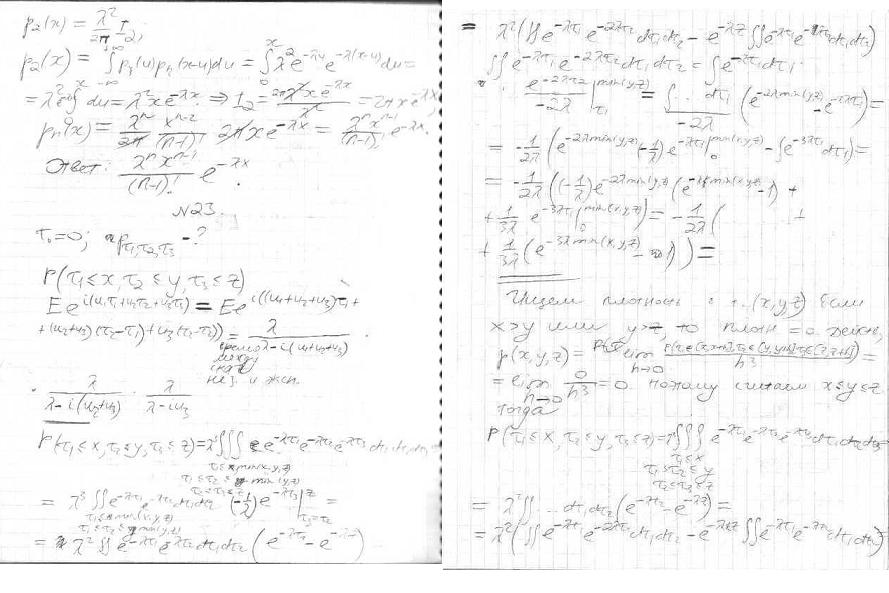 p₂(x) = λ²/2π I₂,
p₂(x) = ∫ p₁(u)p₁(x-u)du = ∫₀ˣ λ² e^{-λu} e^{-λ(x-u)} du =
= λ² e ∫₀ˣ du = λ²x e^{-λx}. ⇒ I₂ = 2π λ² x e^{-λx} / λ² = 2π x e^{-λx}
pₙ(x) = λⁿ/2π x^{n-2}/(n-1)! 2π x e^{-λx} = λⁿ x^{n-1}/(n-1)! e^{-λx}.
Ответ: λⁿ x^{n-1}/(n-1)! e^{-λx}.
N23.
τ₀=0; p_{τ₁,τ₂,τ₃} - ?
P(τ₁ ≤ x, τ₂ ≤ y, τ₃ ≤ z)
E e^{i(u₁τ₁+u₂τ₂+u₃τ₃)} = E e^{i((u₁+u₂+u₃)τ₁+
+(u₂+u₃)(τ₂-τ₁)+u₃(τ₃-τ₂))} = λ/(λ-i(u₁+u₂+u₃))
время
между
нез. и эксп.
· λ/(λ-i(u₂+u₃)) · λ/(λ-iu₃)
P(τ₁≤x, τ₂≤y, τ₃≤z) = λ³∭ e^{-λτ₁} e^{-λτ₂} e^{-λτ₃} dτ₁dτ₂dτ₃
τ₁ ≤ min(x,y,z)
τ₁ ≤ τ₂ ≤ min(y,z)
τ₂ ≤ τ₃ ≤ z
= λ³ ∬ e^{-λτ₁} e^{-λτ₂} dτ₁dτ₂ (-1/λ) e^{-λτ₃} |^z_{τ₃=τ₂} =
τ₁ ≤ min(x,y,z)
τ₁ ≤ τ₂ ≤ min(y,z)
= λ² ∬ e^{-λτ₁} e^{-λτ₂} dτ₁dτ₂ (e^{-λτ₂} - e^{-λz})
= λ²(∬ e^{-λτ₁} e^{-2λτ₂} dτ₁dτ₂ - e^{-λz} ∬ e^{-λτ₁} e^{-λτ₂} dτ₁dτ₂)
∬ e^{-λτ₁} e^{-2λτ₂} dτ₁dτ₂ = ∫ e^{-λτ₁} dτ₁ ·
· e^{-2λτ₂}/(-2λ) |^{min(y,z)}_{τ₁} = ∫ ... dτ₁/(-2λ) (e^{-2λmin(y,z)} - e^{-2λτ₁}) =
= -1/2λ (e^{-2λmin(y,z)} (-1/λ) e^{-λτ₁} |₀^{min(x,y,z)} - ∫ e^{-3λτ₁} dτ₁) =
= -1/2λ ((-1/λ) e^{-2λmin(y,z)} (e^{-λmin(x,y,z)} - 1) +
+ 1/3λ e^{-3λτ₁} |₀^{min(x,y,z)}) = -1/2λ ( +
+ 1/3λ (e^{-3λmin(x,y,z)} - 1)) =
Ищем плотность в т. (x,y,z) Если
x>y или y>z, то плотн = 0. Действ,
p(x,y,z) = lim_{h→0} P(τ₁∈(x,x+h), τ₂∈(y,y+h), τ₃∈(z,z+h))/h³ =
= lim_{h→0} 0/h³ = 0. Поэтому считаем x≤y≤z
тогда
P(τ₁≤x, τ₂≤y, τ₃≤z) = λ³∭ e^{-λτ₁} e^{-λτ₂} e^{-λτ₃} dτ₁dτ₂dτ₃
τ₁≤x
τ₁≤τ₂≤y
τ₂≤τ₃≤z
= λ² ∬ ... dτ₁dτ₂ (e^{-λτ₂} - e^{-λz}) =
= λ² (∬ e^{-λτ₁} e^{-2λτ₂} dτ₁dτ₂ - e^{-λz} ∬ e^{-λτ₁} e^{-λτ₂} dτ₁dτ₂)